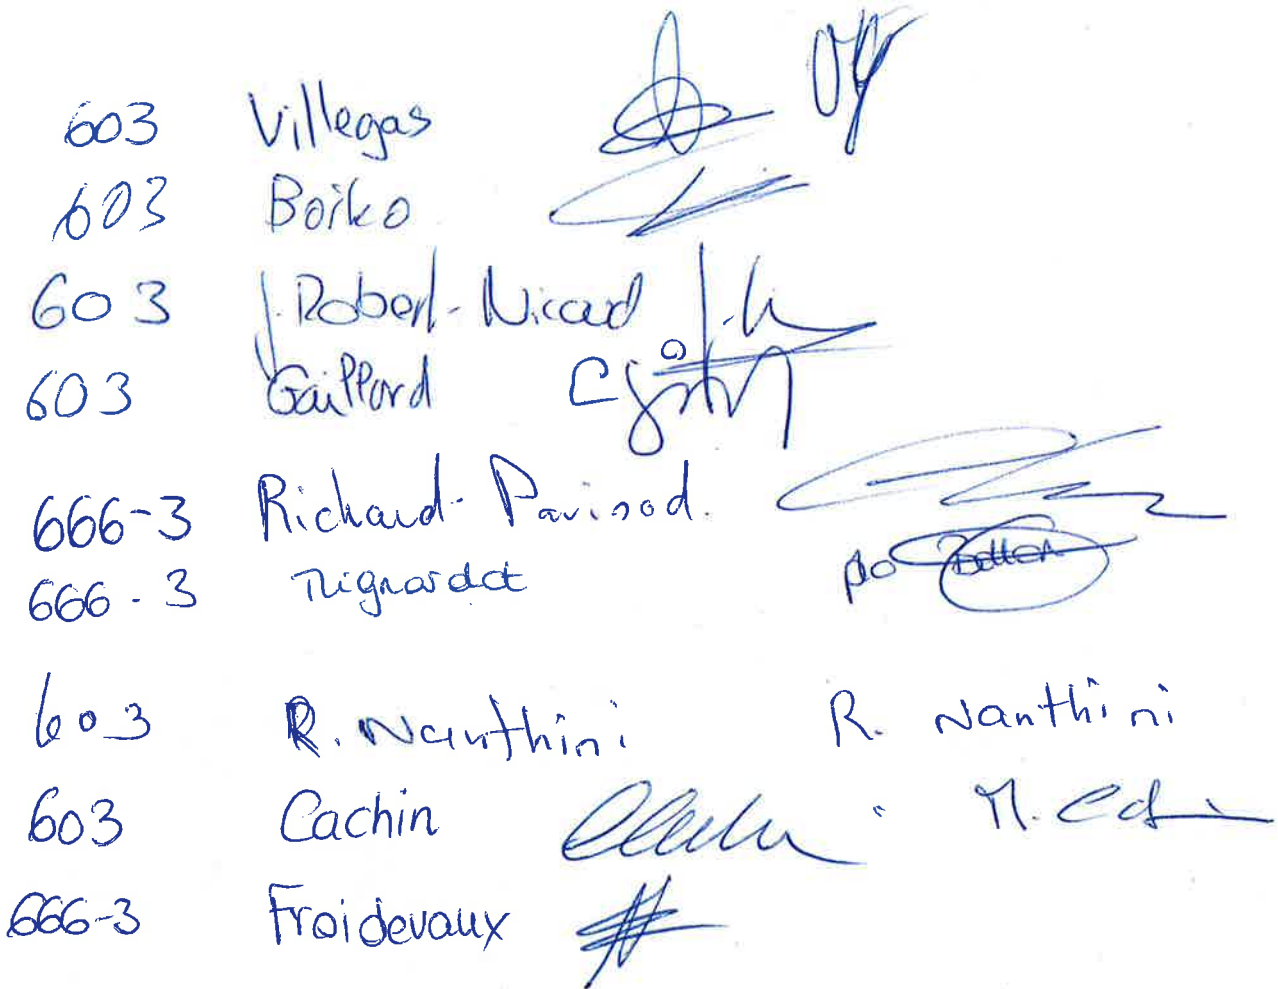 603 Villegas
603 Boiko
603 J. Robert-Nicoud
603 Gaillard
666-3 Richard-Parisod.
666-3 Mignardot po
603 R. Nanthini R. Nanthini
603 Cachin
666-3 Froidevaux